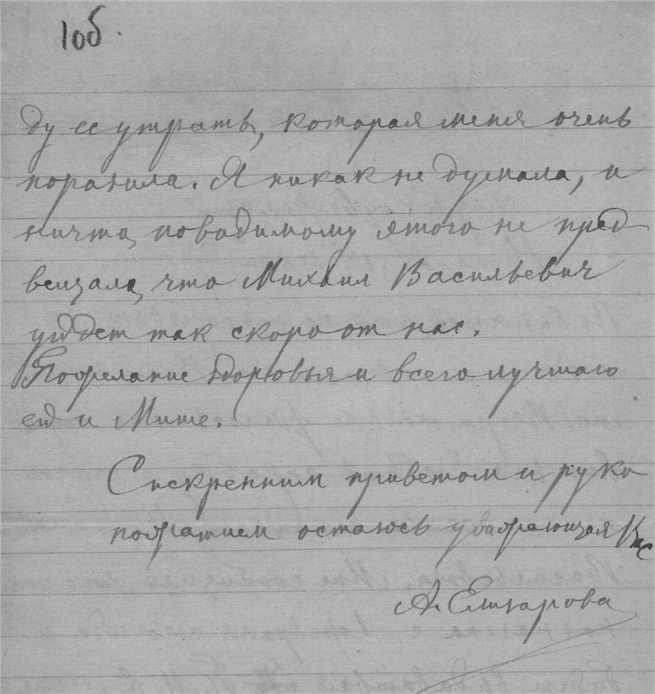 10б.
ду ее утраты, которая меня очень
поразила. Я никак не думала, и
ничто, повадимому этого не пред
вещало, что Михаил Васильевич
уйдет так скоро от нас.
Пожелание здоровья и всего лучшаго
ей и Мише.
С искренним приветом и руко
пожатием остаюсь уважающая Вас
А. Елизарова